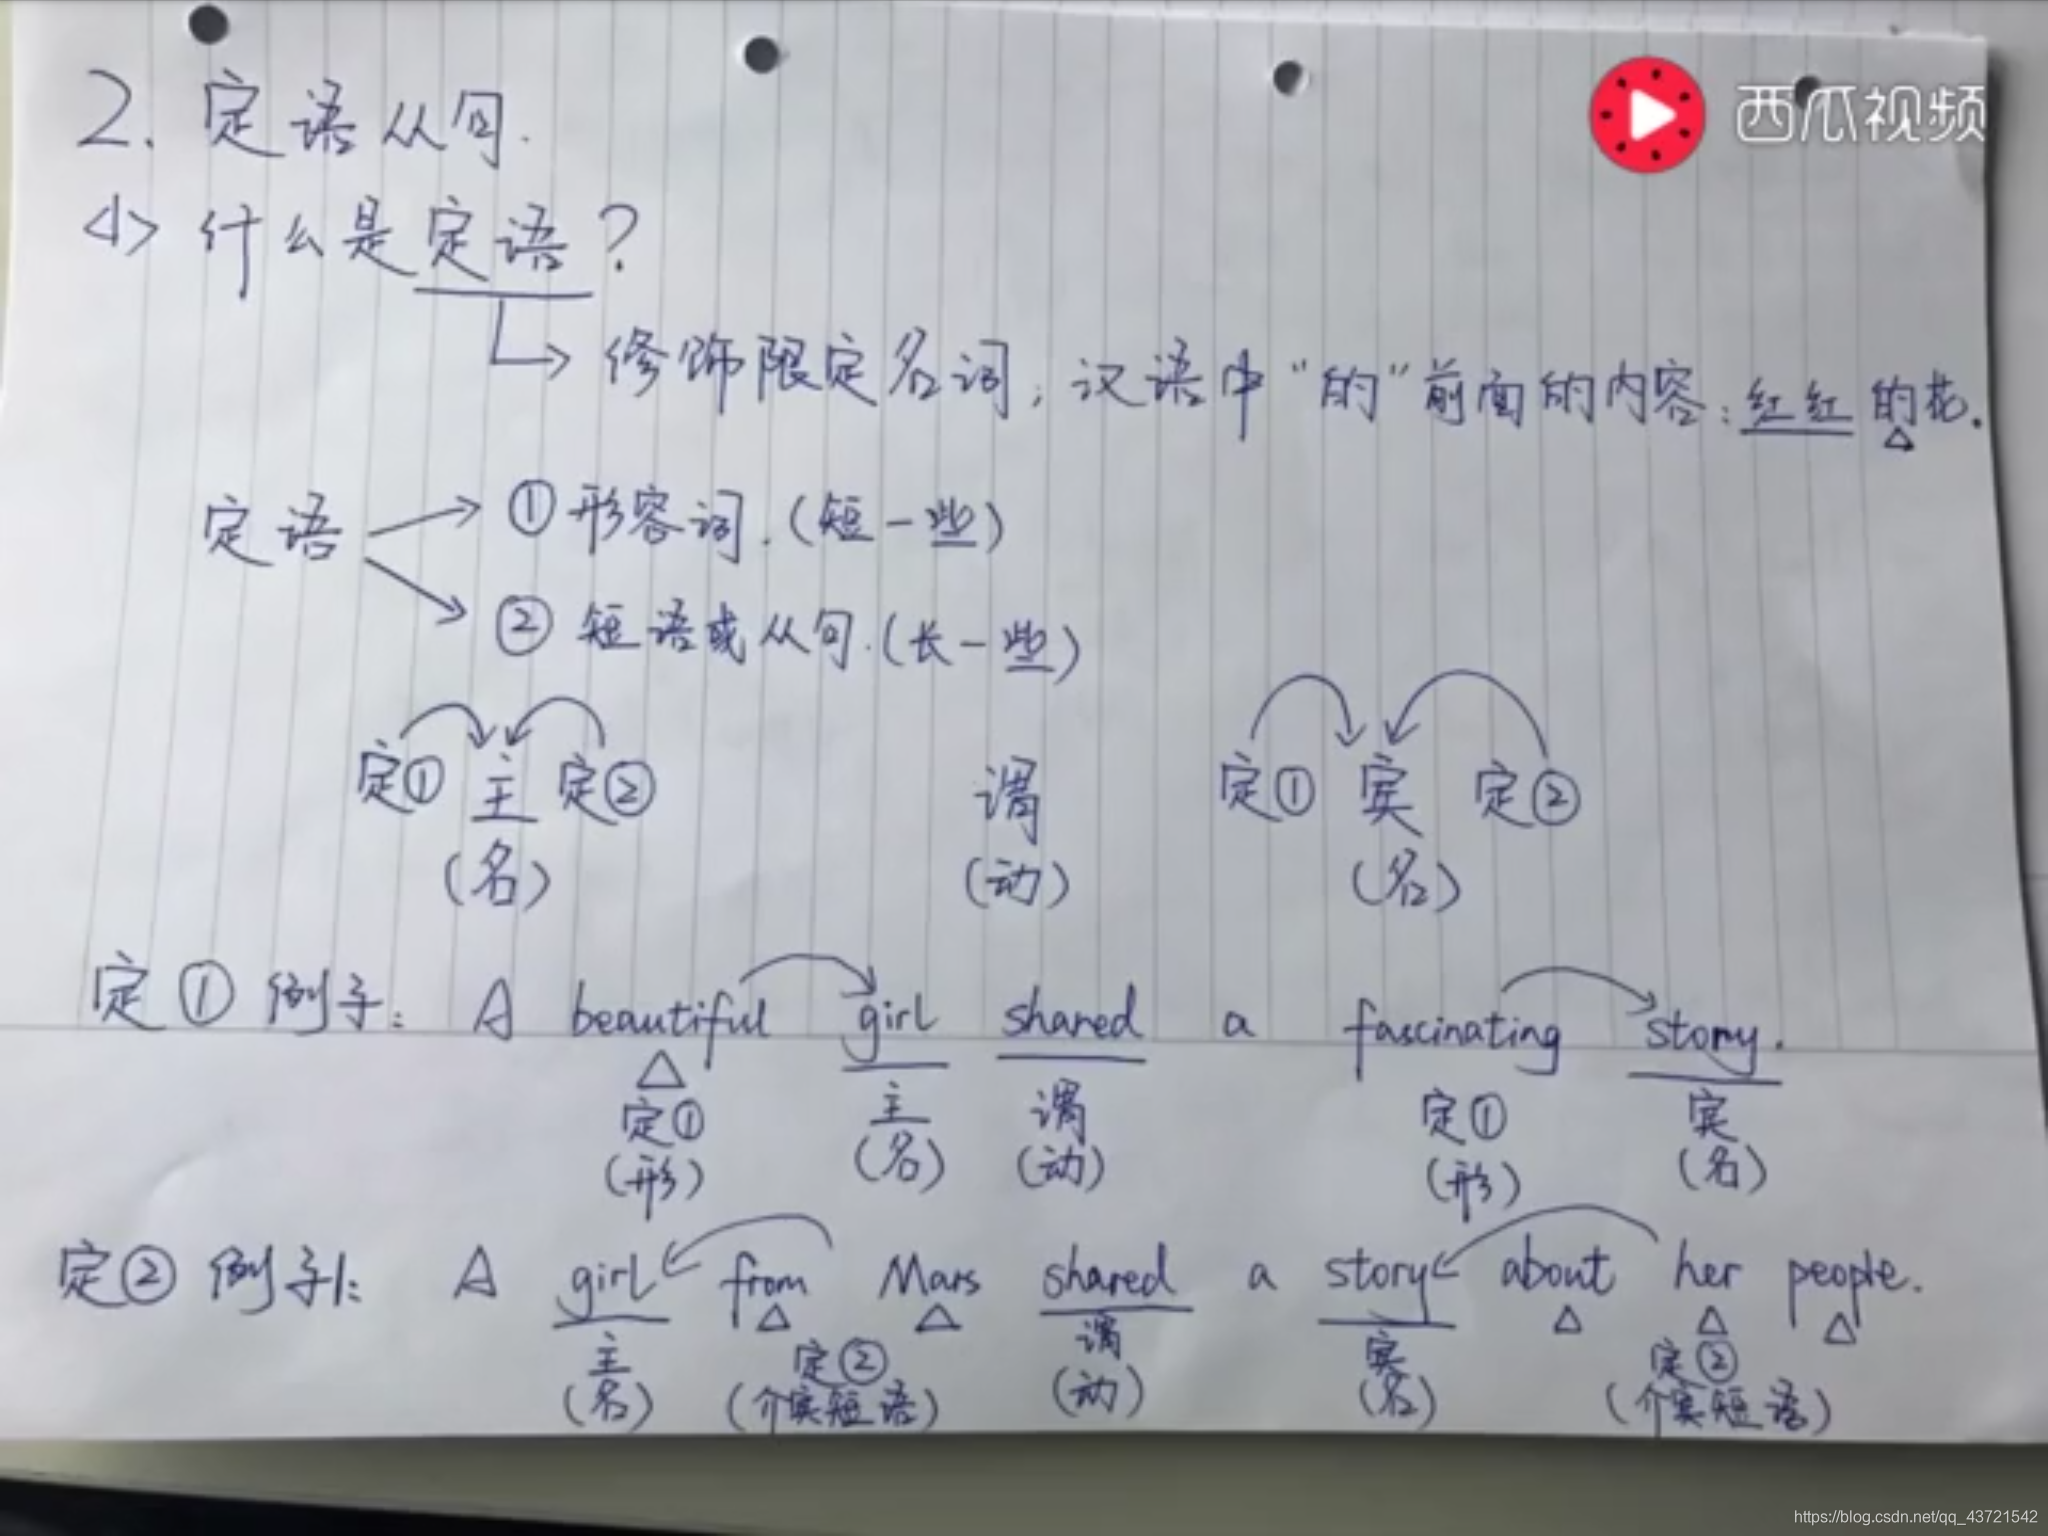 西瓜视频
2. 定语从句.
<1> 什么是定语?
修饰限定名词; 汉语中"的"前面的内容: 红红的花.
定语
① 形容词. (短一些)
② 短语或从句. (长一些)
定① 主 定② 谓 定① 宾 定②
(名) (动) (名)
定① 例子: A beautiful girl shared a fascinating story.
定① 主 谓 定① 宾
(形) (名) (动) (形) (名)
定② 例子: A girl from Mars shared a story about her people.
主 定② 谓 宾 定②
(名) (介宾短语) (动) (名) (介宾短语)
https://blog.csdn.net/qq_43721542